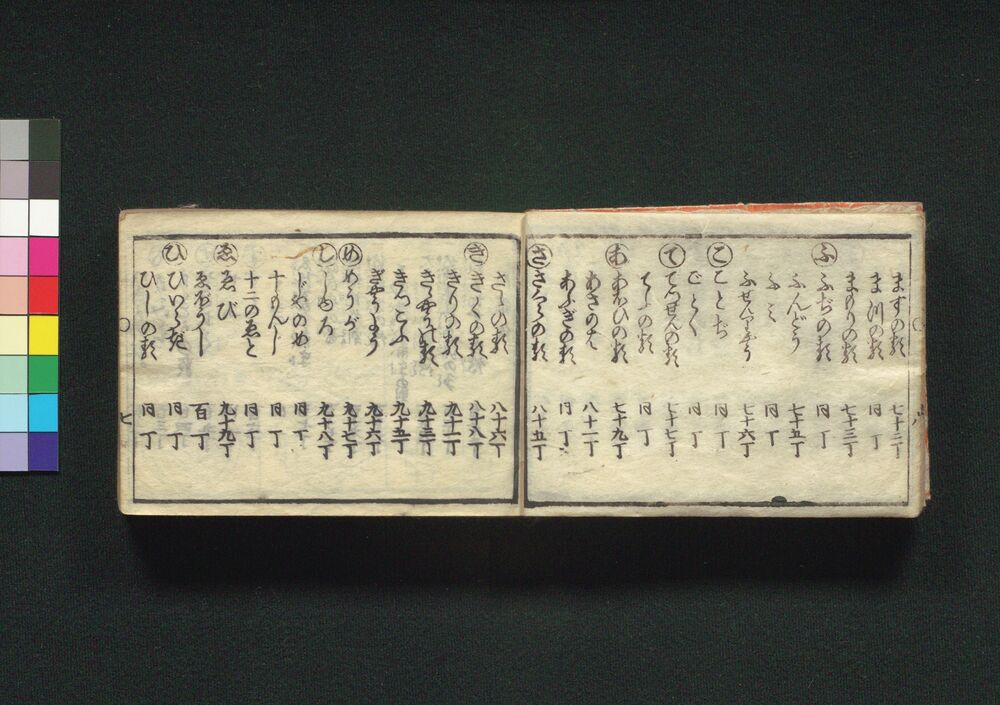 ますの類 七十二丁
ま川の類 同丁
まりの類 七十三丁
ふ ふぢの類 同丁
ふんどう 七十五丁
ふみ 同丁
ふせんりやう 七十六丁
こ ことぢ 同丁
ごとく 同丁
て てつせんの類 七十七丁
てうの類 同丁
あ あふひの類 七十九丁
あさのは 八十一丁
あふぎの類 同丁
さ さくらの類 八十五丁
さゝの類 八十六丁
き きくの類 八十八丁
きりの類 九十一丁
ききやうの類 九十三丁
きつこふ 九十五丁
ぎやうよう 九十六丁
め めうが 九十七丁
し しゆろ 九十八丁
じやのめ 同丁
十もんじ 同丁
十二のゑと 同丁
ゑ ゑび 九十九丁
ゑぼうし 百丁
ひ ひいらぎ 同丁
ひしの類 同丁
七